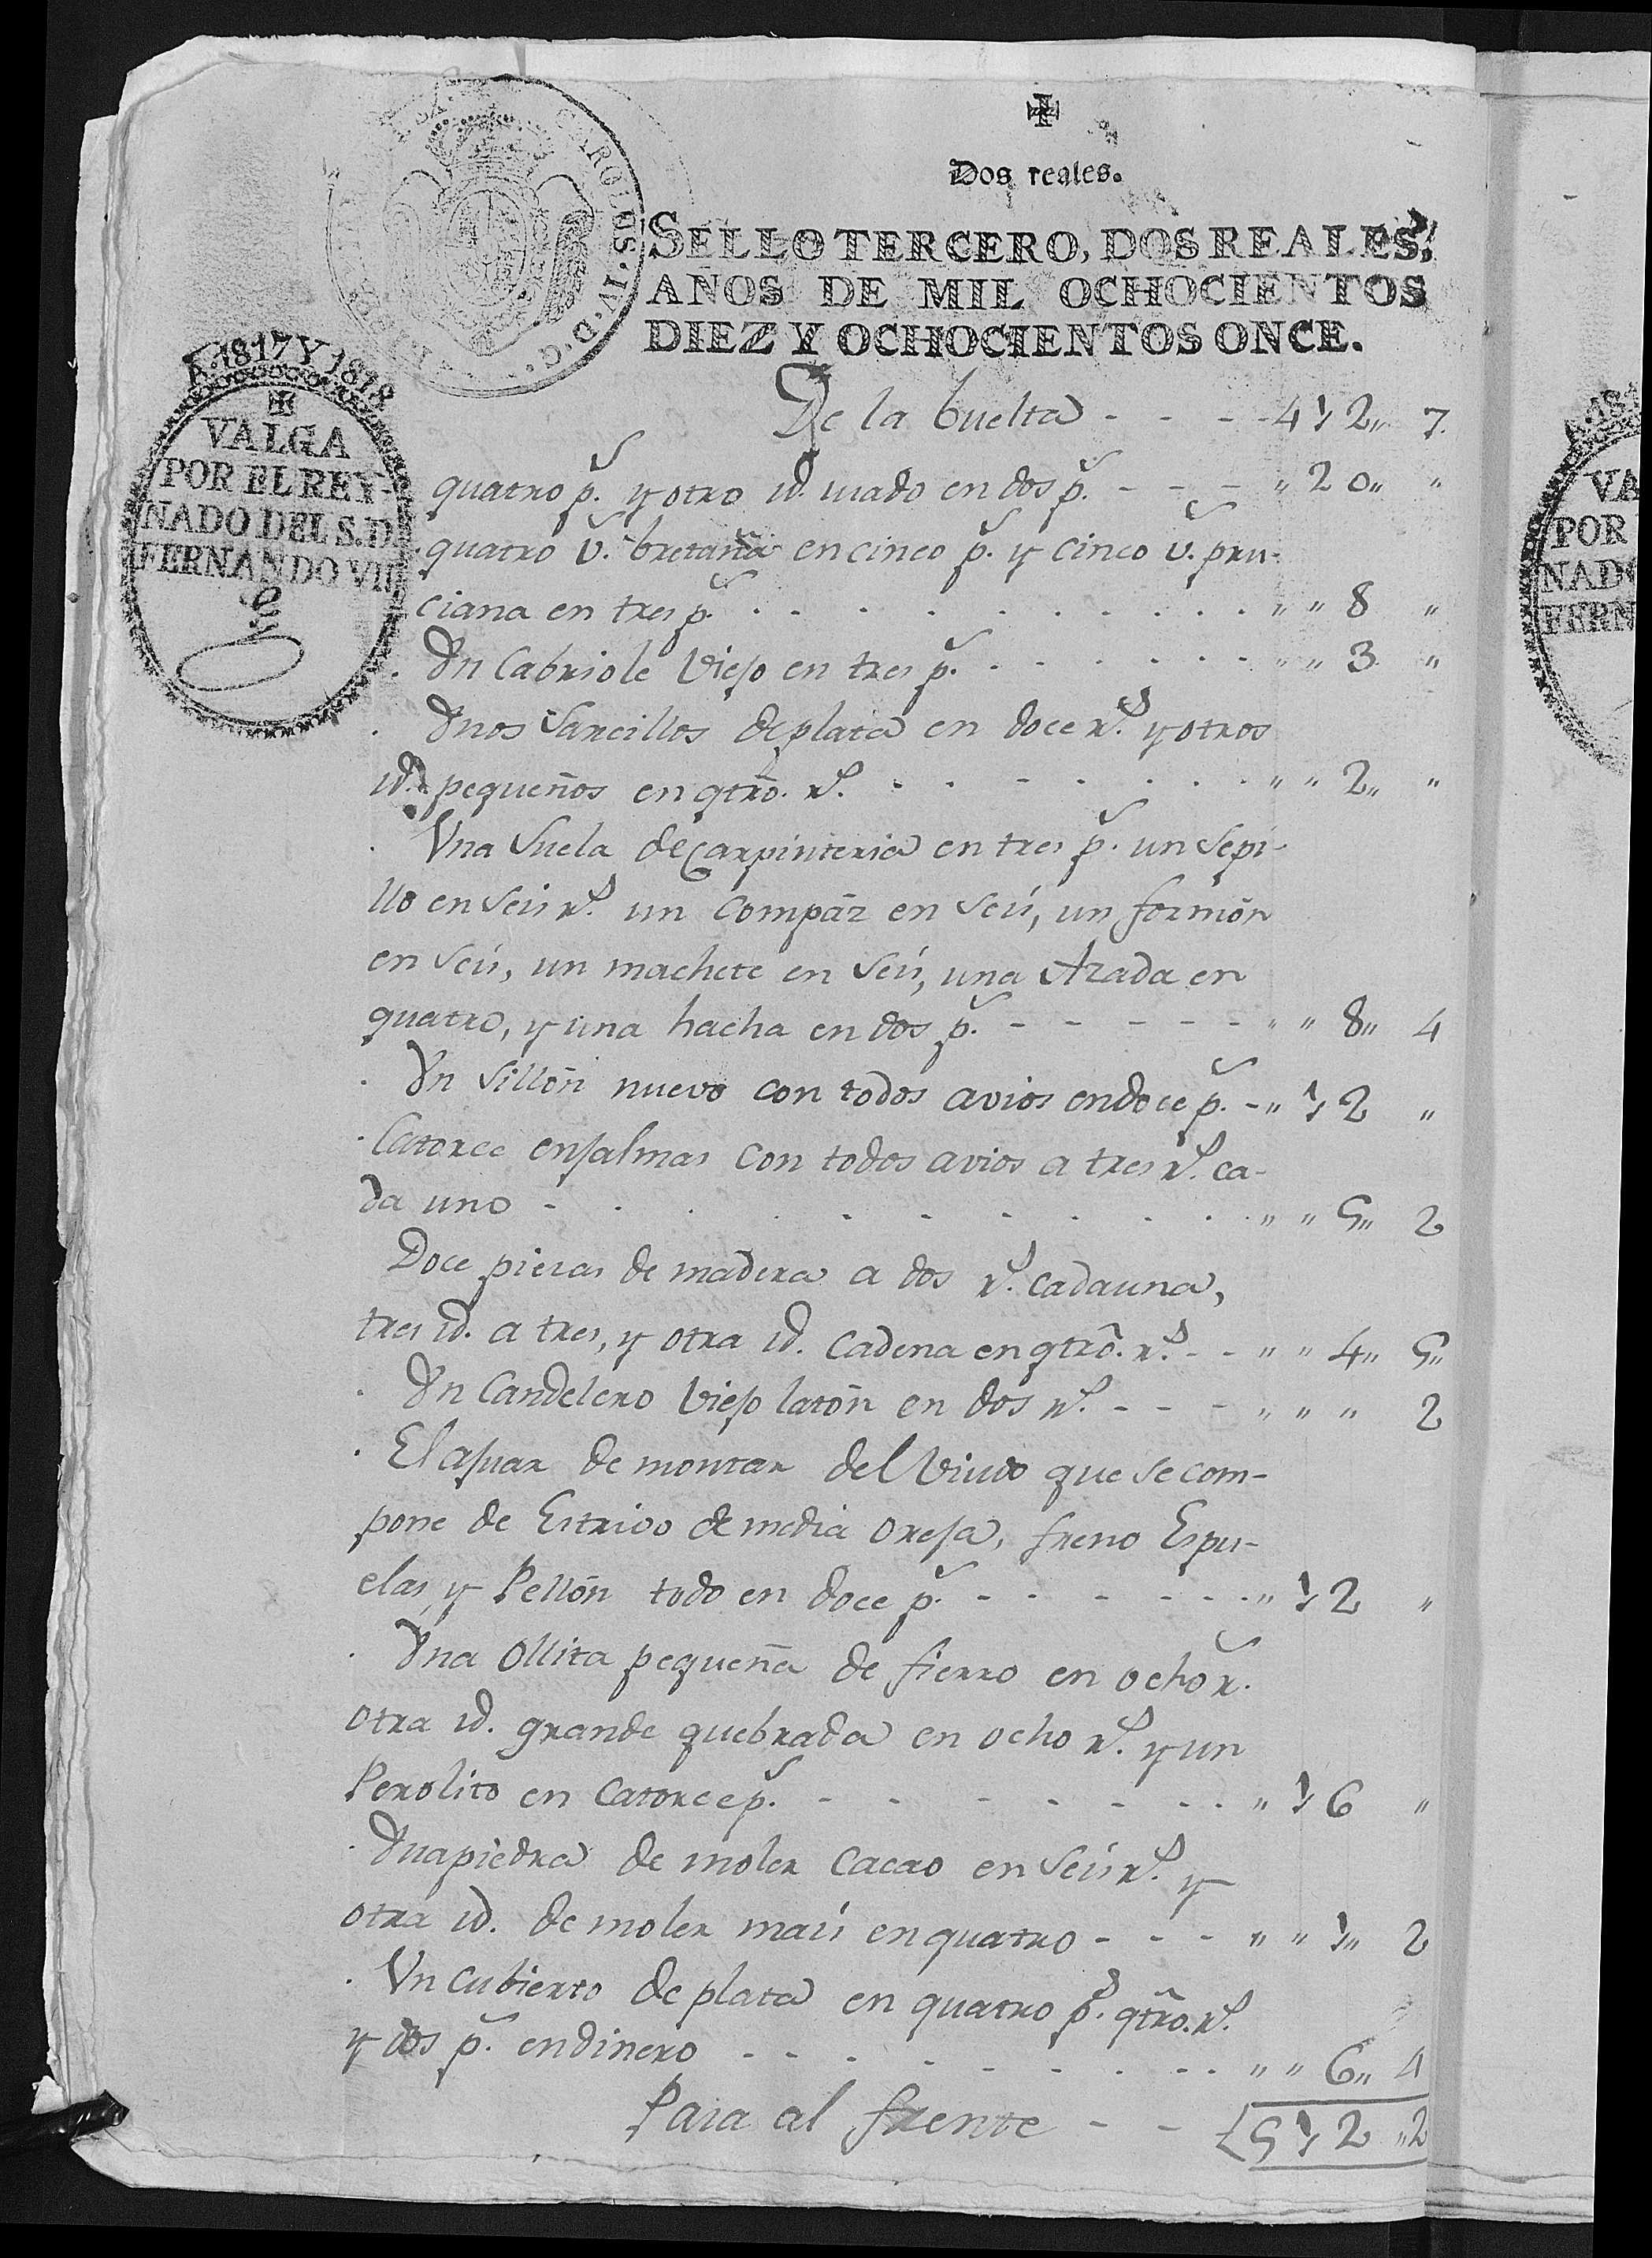 Dos reales.
SELLO TERCERO, DOS REALES,
AÑOS DE MIL OCHOCIENTOS
DIEZ Y OCHOCIENTOS ONCE.
CAROLUS. IV. D. G.
A. 1817 Y 1818
VALGA
POR EL REY-
NADO DEL S. D.
FERNANDO VII
De la buelta - - - - 412,, 7.
quatro p.s y otro id. usado en dos p.s - - - ,, 20,, ,,
quatro v.s bretaña en cinco p.s y cinco v.s pru-
ciana en tres p.s - - - ,, ,, 8 ,,
Un Cabriole viejo en tres p.s - - - ,, ,, 3 ,,
Unos Sarcillos de plata en doce r.s y otros
id. pequeños en qtro. r.s - - - ,, ,, 2,, ,,
Una Suela de Carpinteria en tres p.s un Sepi-
llo en seis r.s un Compáz en seis, un formón
en seis, un machete en seis, una Azada en
quatro, y una hacha en dos p.s - - - ,, ,, 8,, 4
Un Sillón nuevo con todos avios en doce p.s - ,, 12 ,,
Catorce enjalmas con todos avios a tres r.s ca-
da uno - - - ,, ,, 5,, 2
Doce piezas de madera a dos r.s cada una,
tres id. a tres, y otra id. Cadena en qtro. r.s - - ,, ,, 4,, 5,,
Un Candelero viejo latón en dos r.s - - - ,, ,, ,, 2
El ajuar de montar del Viudo que se com-
pone de Estrivo de media oreja, freno Espu-
elas, y Pellón todo en doce p.s - - - ,, 12 ,,
Una Ollita pequeña de fierro en ocho r.s
otra id. grande quebrada en ocho r.s y un
Perolito en Catorce p.s - - - ,, 16 ,,
Una piedra de moler Cacao en seis r.s y
otra id. de moler maís en quatro - - - ,, ,, 1,, 2
Un Cubierto de plata en quatro p.s qtro. r.s
y dos p.s en dinero - - - ,, ,, 6,, 4
Pasa al frente - - 512,, 2
VA
POR
NADO
FERN